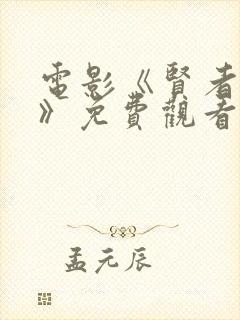 電影《賢者
》免費觀看
孟元辰